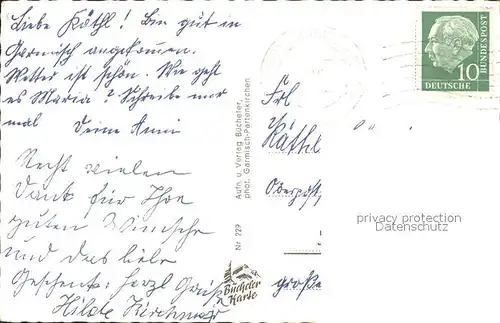 Liebe Käthl! Bin gut in
Garmisch angekommen.
Wetter ist schön. Wie geht
es Maria? Schreibe mir
mal Deine Anni
Recht vielen
Dank für Ihre
guten Wünsche
und das liebe
Geschenk. herzl Grüß
Hilde Kirchmair
Aufn. u. Verlag Bücheler,
phot. Garmisch-Partenkirchen
Nr 229
Bücheler
Karte
10
DEUTSCHE
BUNDESPOST
Frl
Käthl
Oberpost
privacy protection
Datenschutz
große